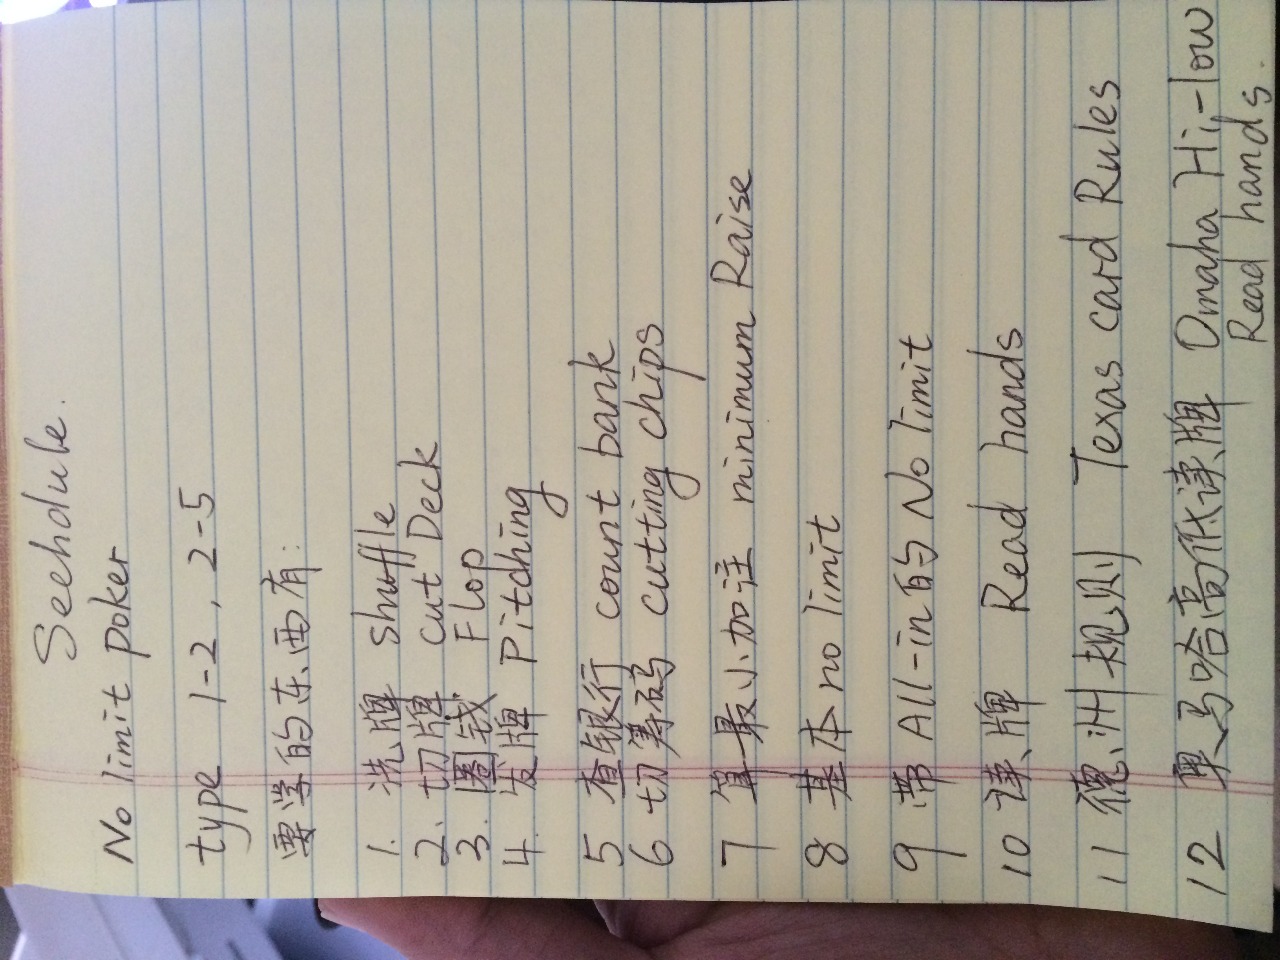 Seehdule.
No limit poker
type 1-2, 2-5
要学的东西有:
1. 洗牌 shuffle
2. 切牌 cut Deck
3. 圈钱 Flop
4. 发牌 Pitching
5 查银行 count bank
6 切筹码 cutting chips
7 算最小加注 minimum Raise
8 基本 no limit
9 带 All-in的 No limit
10 读牌 Read hands
11 德州规则 Texas card Rules
12 奥马哈高低读牌 Omaha Hi-low
Read hands.